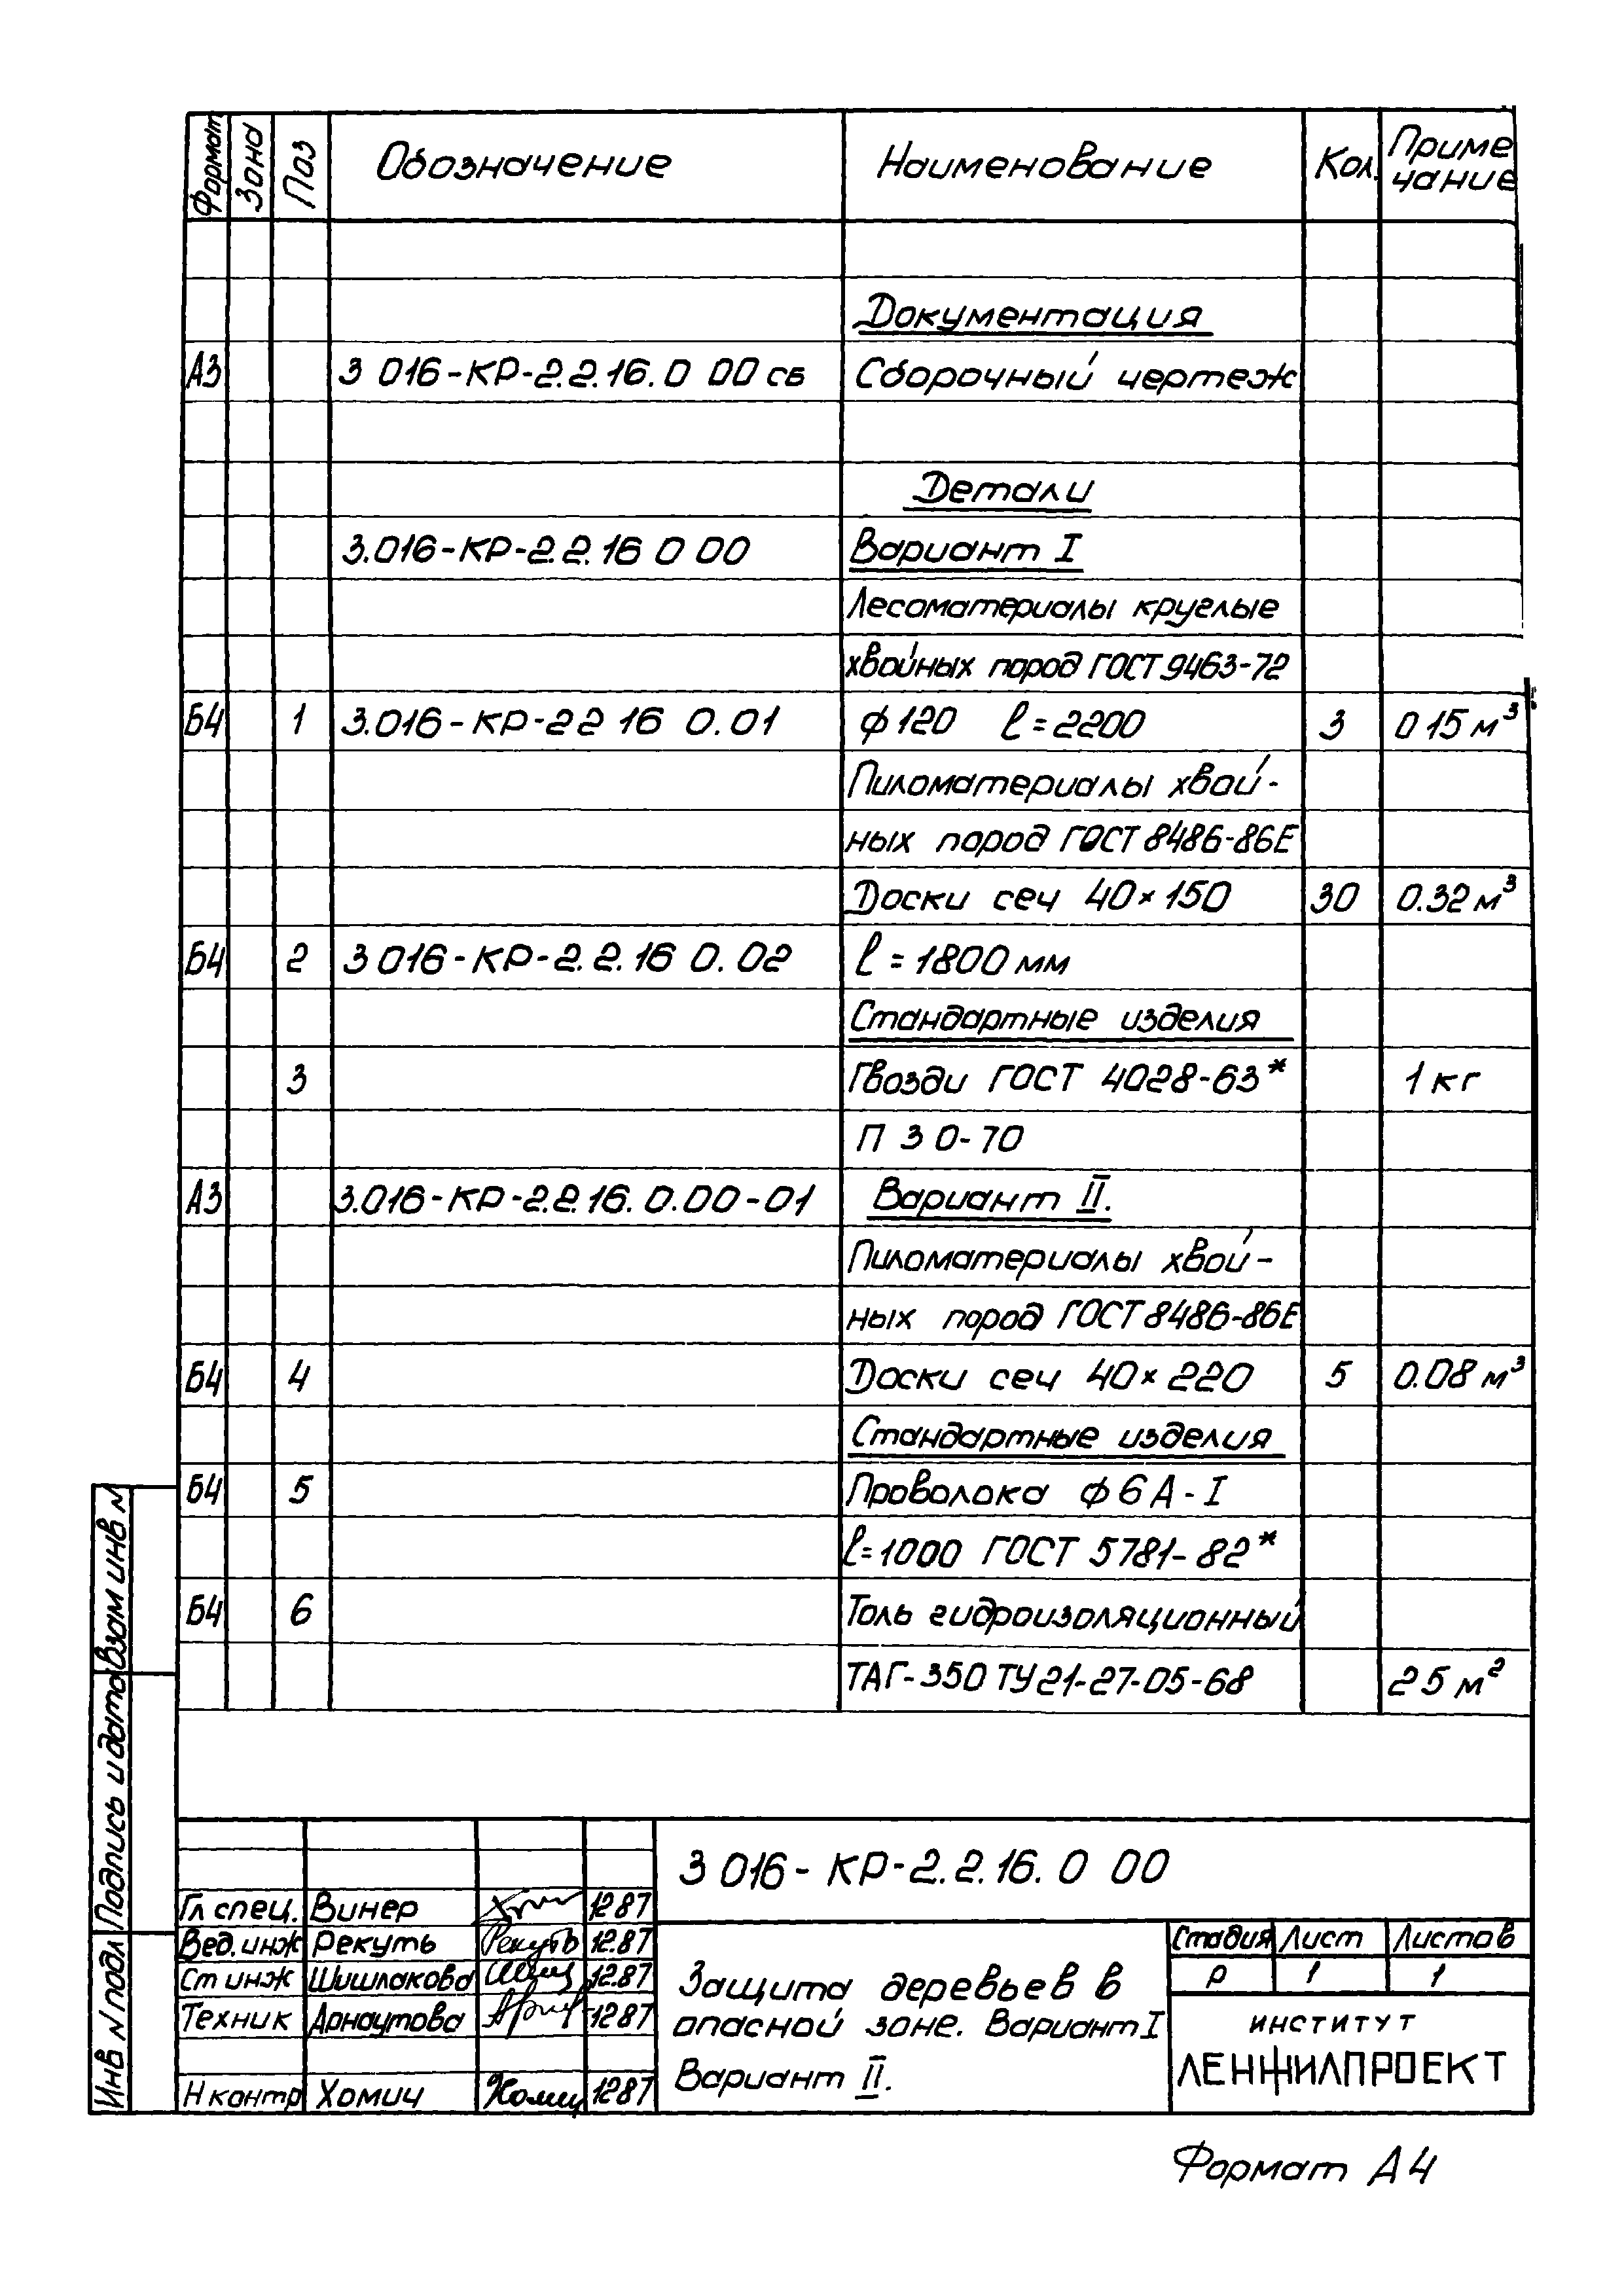 Формат Зона Поз Обозначение Наименование Кол. Примечание
Документация
А3 3 016-КР-2.2.16.0 00 СБ Сборочный чертеж
Детали
3.016-КР-2.2.16 0 00 Вариант I
Лесоматериалы круглые
хвойных пород ГОСТ 9463-72
Б4 1 3.016-КР-2 2 16 0.01 ф 120 ℓ=2200 3 0 15 м³
Пиломатериалы хвой-
ных пород ГОСТ 8486-86Е
Доски сеч 40×150 30 0.32 м³
Б4 2 3 016-КР-2.2.16 0.02 ℓ=1800 мм
Стандартные изделия
3 Гвозди ГОСТ 4028-63* 1 кг
П 3 0-70
А3 3.016-КР-2.2.16.0.00-01 Вариант II.
Пиломатериалы хвой-
ных пород ГОСТ 8486-86Е
Б4 4 Доски сеч 40×220 5 0.08 м³
Стандартные изделия
Б4 5 Проволока ф 6 А-I
ℓ=1000 ГОСТ 5781-82*
Б4 6 Толь гидроизоляционный
ТАГ-350 ТУ 21-27-05-68 2 5 м²
Взам инв N
Подпись и дата
Инв N подл
3 016-КР-2.2.16.0 00
Гл спец. Винер 12 87
Вед. инж Рекуть Рекуть 12.87
Ст инж Шишлакова 12.87
Техник Арнаутова 12 87
Н контр Хомич Хомич 12 87
Защита деревьев в
опасной зоне. Вариант I
Вариант II.
Стадия Лист Листов
Р 1 1
ИНСТИТУТ
ЛЕНЖИЛПРОЕКТ
Формат А4